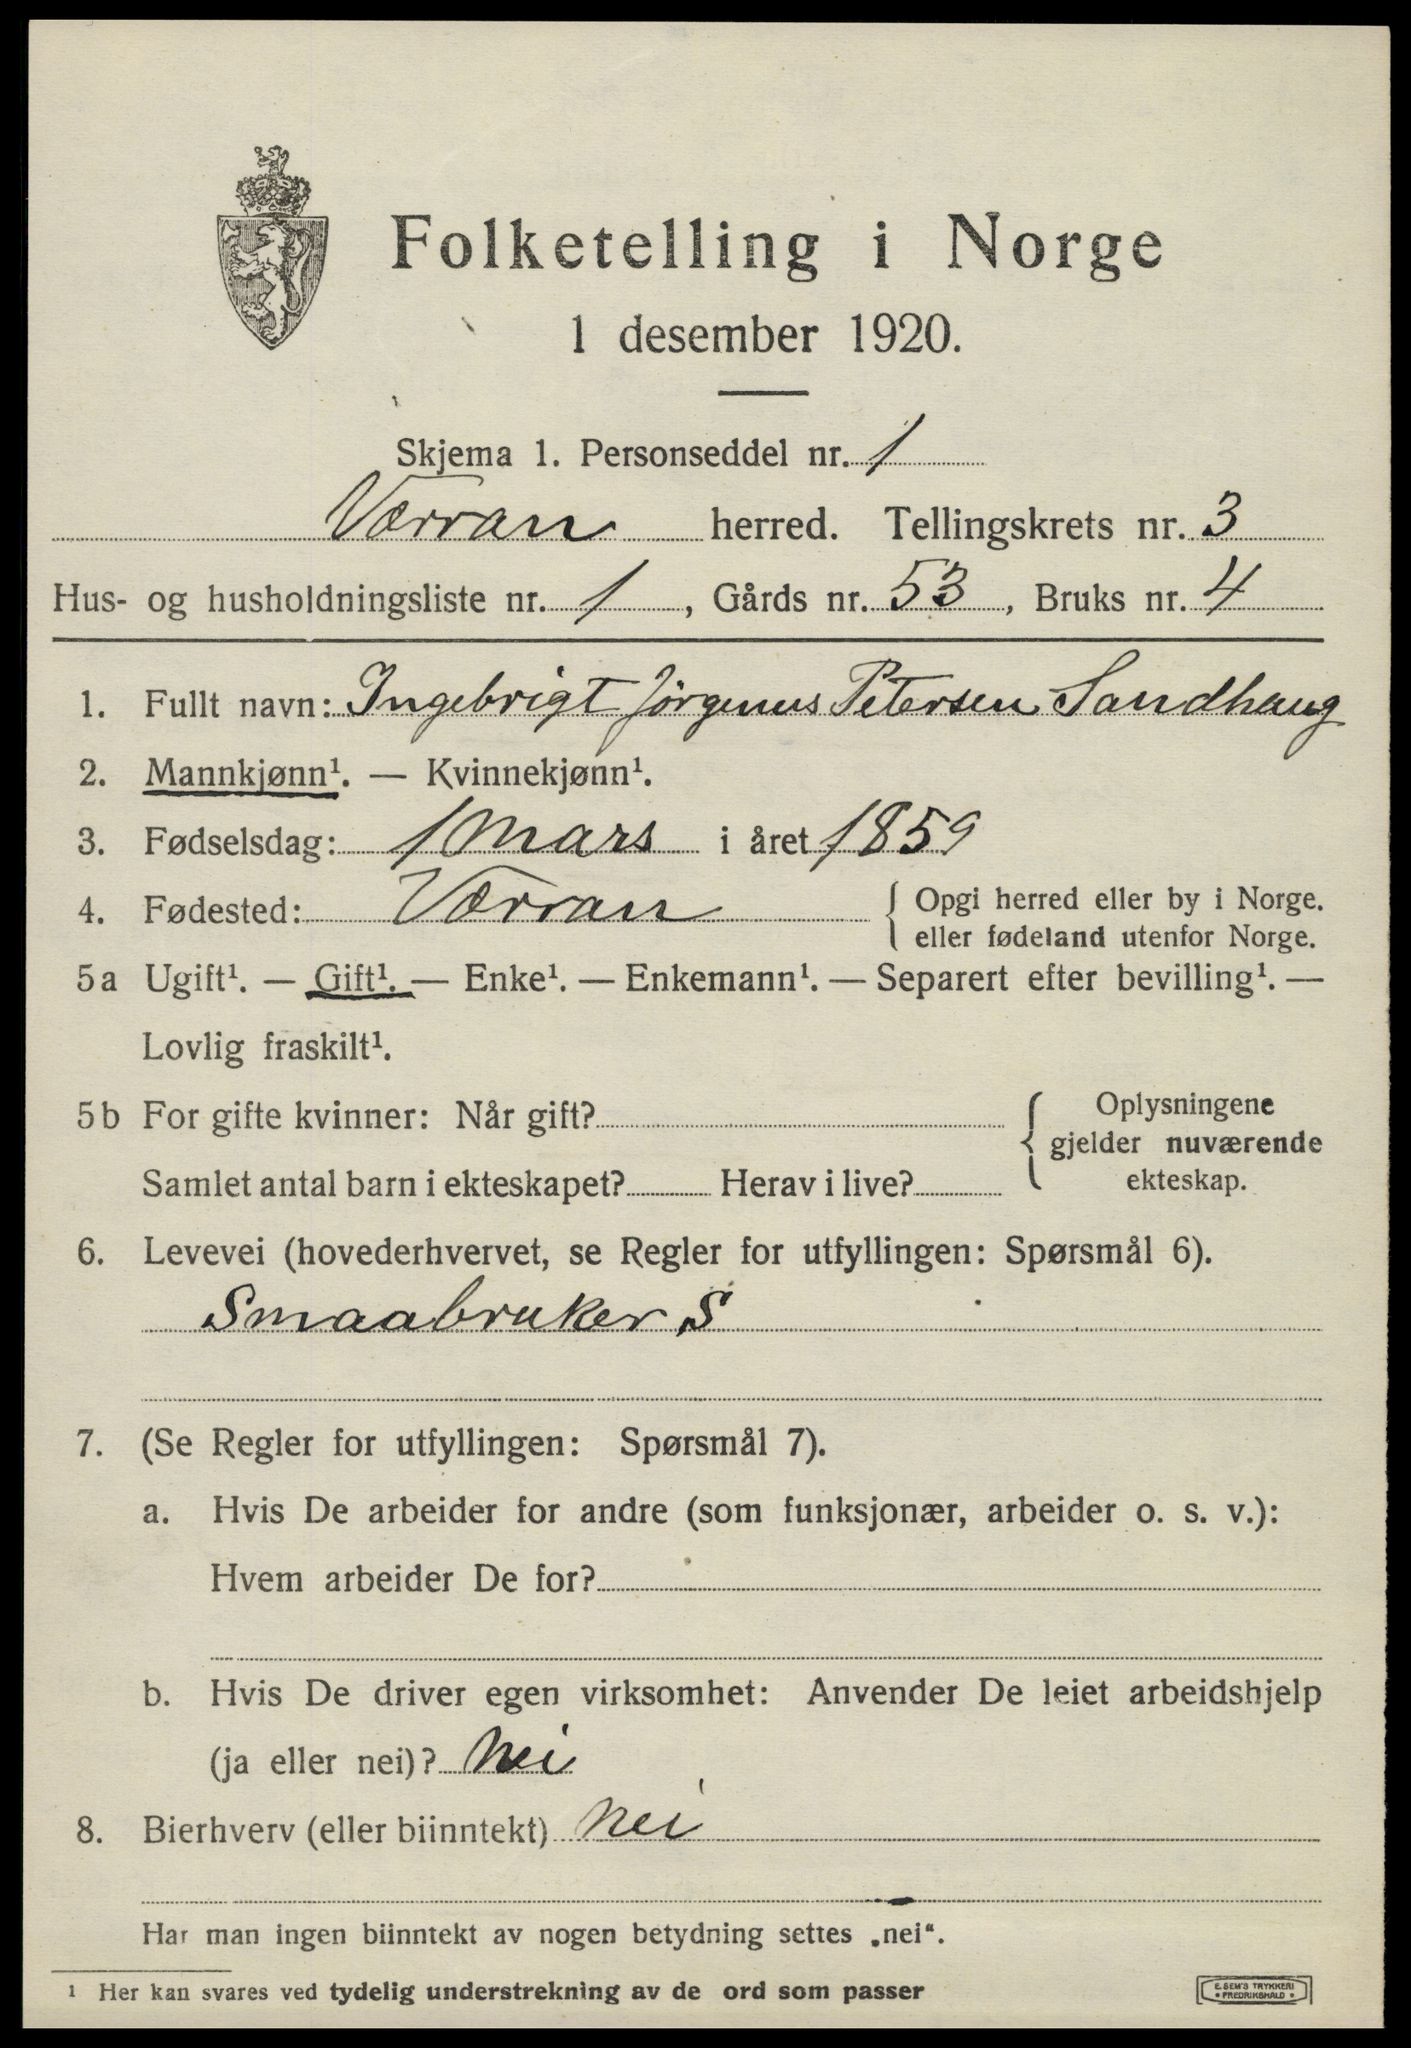 Folketelling i Norge
1 desember 1920.
Skjema 1. Personseddel nr. 1
Værran herred. Tellingskrets nr. 3
Hus- og husholdningsliste nr. 1, Gårds nr. 53, Bruks nr. 4
1. Fullt navn: Ingebrigt Jörgenus Petersen Sandhaug
2. Mannkjønn¹. — Kvinnekjønn¹.
3. Fødselsdag: 1 Mars i året 1859
4. Fødested: Værran { Opgi herred eller by i Norge.
eller fødeland utenfor Norge.
5a Ugift¹. — Gift¹. — Enke¹. — Enkemann¹. — Separert efter bevilling¹. —
Lovlig fraskilt¹.
5b For gifte kvinner: Når gift?
Samlet antal barn i ekteskapet? Herav i live?
Oplysningene
gjelder nuværende
ekteskap.
6. Levevei (hovederhvervet, se Regler for utfyllingen: Spørsmål 6).
Smaabruker S
7. (Se Regler for utfyllingen: Spørsmål 7).
a. Hvis De arbeider for andre (som funksjonær, arbeider o. s. v.):
Hvem arbeider De for?
b. Hvis De driver egen virksomhet: Anvender De leiet arbeidshjelp
(ja eller nei)? Nei
8. Bierhverv (eller biinntekt) Nei
Har man ingen biinntekt av nogen betydning settes „nei".
¹ Her kan svares ved tydelig understrekning av de ord som passer
E. SEM'S TRYKKERI
• FREDRIKSHALD •